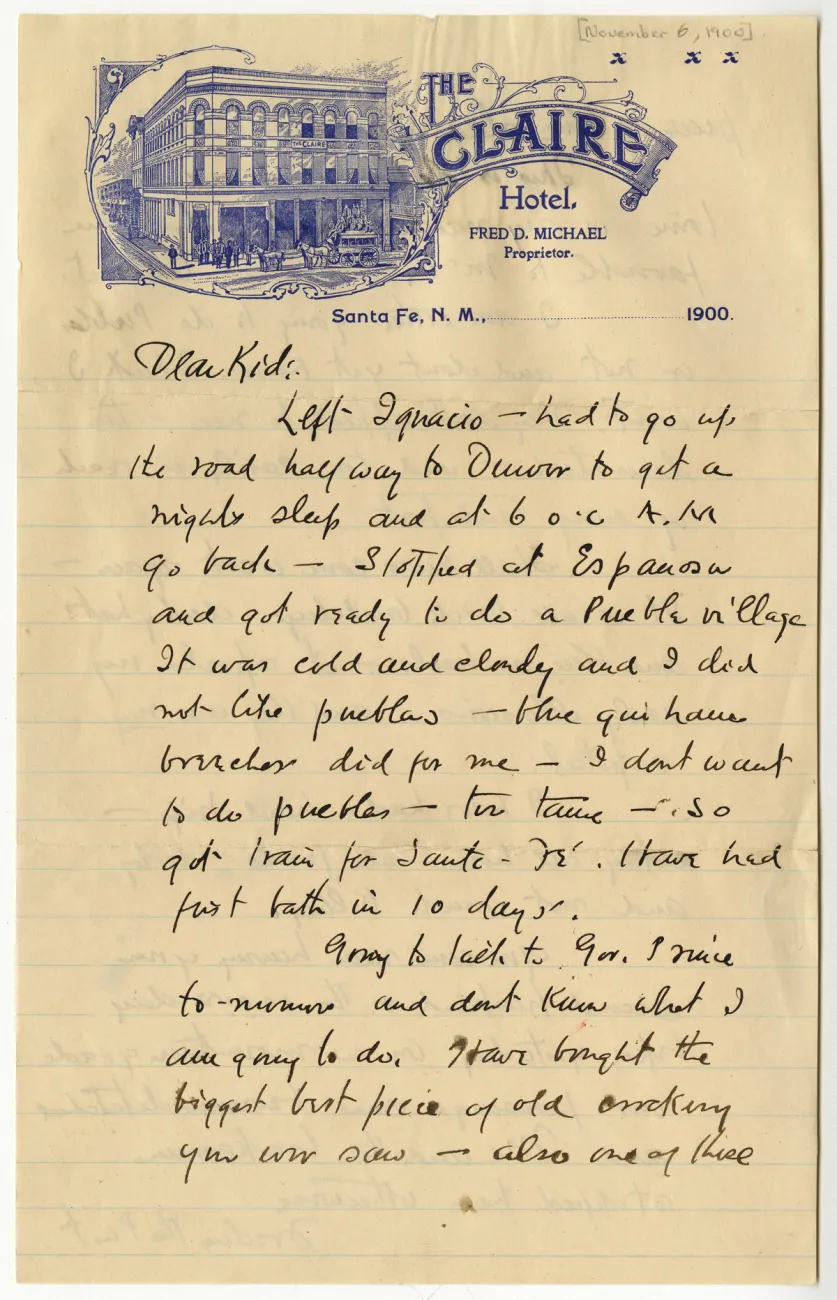 [November 6, 1900]
x x x
THE
CLAIRE
Hotel.
FRED D. MICHAEL
Proprietor.
THE CLAIRE
Santa Fe, N. M., 1900.
Dear Kid:
Left Ignacio — had to go up
the road half way to Denver to get a
nights sleep and at 6 o.c A.M
go back — Stopped at Espanosa
and got ready to do a Puebla village
It was cold and cloudy and I did
not like pueblas — blue
breeches did for me — I dont want
to do pueblas — too tame — . So
got train for Santa - Fé . Have had
first bath in 10 days .
Going to talk to Gov. Prince
to-morrow and dont know what I
am going to do. Have bought the
biggest best piece of old crockery
you ever saw — also one of those